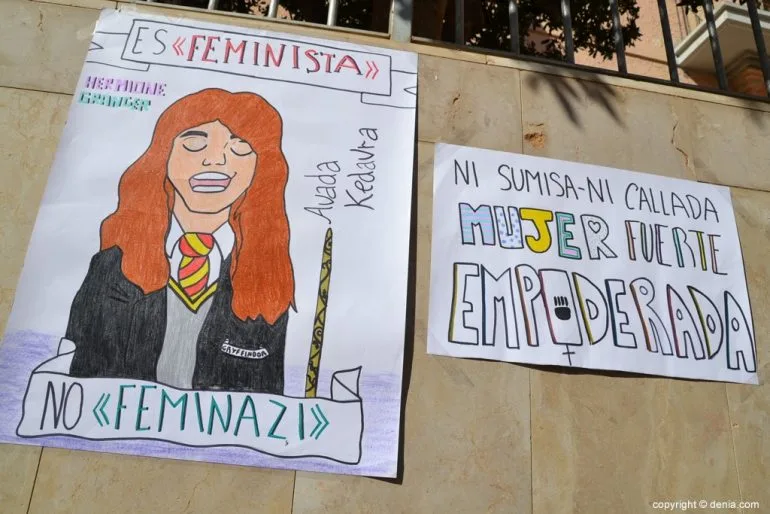 ES «FEMINISTA»
HERMIONE
GRANGER
Avada
Kedavra
GRYFFINDOR
NO «FEMINAZI»
NI SUMISA-NI CALLADA
MUJER FUERTE
EMPODERADA
copyright © denia.com